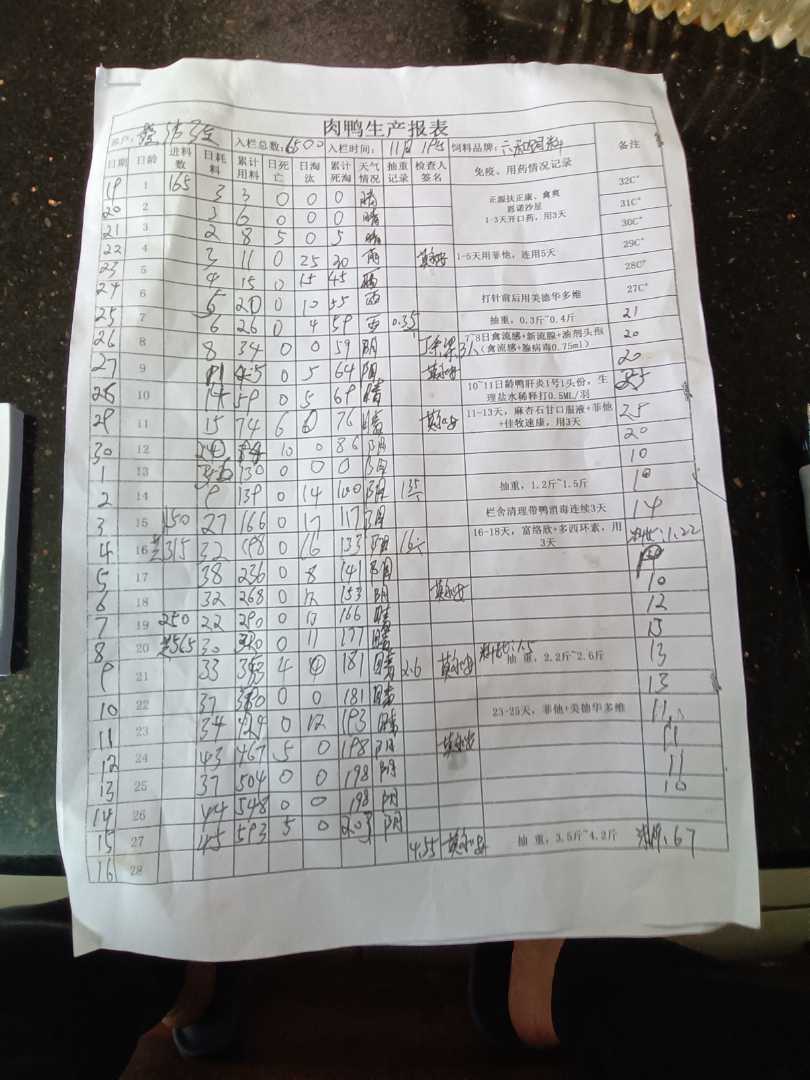 肉鸭生产报表
客户: 入栏总数: 6500 入栏时间: 11月19号 饲料品牌: 六和饲料
日期 日龄 进料数 日耗料 累计用料 日死亡 日淘汰 累计死淘 天气情况 抽重记录 检查人签名 免疫、用药情况记录 备注
19 1 165 3 3 0 0 0 晴 32C°
正源扶正康、禽爽
恩诺沙星
1-3天开口药，用3天
20 2 3 6 0 0 0 晴 31C°
21 3 2 8 5 0 5 晴 30C°
22 4 3 11 0 25 30 雨 1-5天用菲他，连用5天 29C°
23 5 4 15 0 15 45 雨 28C°
24 6 5 20 0 10 55 雨 打针前后用美德华多维 27C°
25 7 6 26 0 4 59 雨 0.35 抽重，0.3斤~0.4斤 21
26 8 8 34 0 0 59 阴 7-8日禽流感+新流腺+油剂头孢（禽流感+腺病毒0.75ml） 20
27 9 11 45 0 5 64 阴 20
28 10 14 59 0 5 69 晴 10~11日龄鸭肝炎1号1头份，生理盐水稀释打0.5ML/羽 25
29 11 15 74 6 76 晴 11-13天，麻杏石甘口服液+菲他+佳牧速康，用3天 25
30 12 10 0 86 阴 20
1 13 130 0 0 0 阴 10
2 14 9 139 0 14 100 阴 135 抽重，1.2斤~1.5斤 10
3 15 150 27 166 0 17 117 阴 栏舍清理带鸭消毒连续3天 14
4 16 315 32 198 0 16 133 阴 16-18天，富络欣+多西环素，用3天 1.22
5 17 38 236 0 8 141 阴
6 18 32 268 0 12 153 阴 10
7 19 250 22 290 0 13 166 晴 12
8 20 565 30 320 0 11 177 晴 料比:1.5 13
9 21 33 353 4 181 晴 2.6 抽 重，2.2斤~2.6斤 13
10 22 37 0 0 181 晴 13
11 23 34 424 0 12 193 晴 23-25天，菲他+美德华多维 11
12 24 43 467 5 0 198 阴 11
13 25 37 504 0 0 198 阴 11
14 26 44 548 0 0 198 阴 10
15 27 45 593 5 0 203 阴
16 28 4.55 抽 重，3.5斤~4.2斤